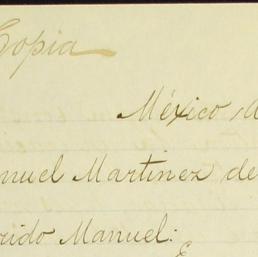 Copia
México
nuel Martinez de
rido Manuel: